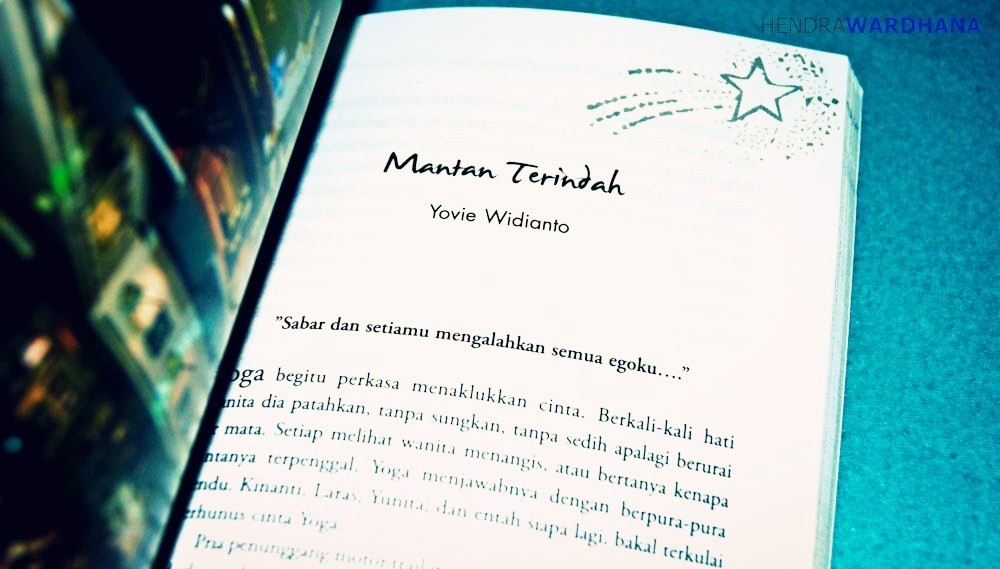 HENDRAWARDHANA
Mantan Terindah
Yovie Widianto
”Sabar dan setiamu mengalahkan semua egoku....”
begitu perkasa menaklukkan cinta. Berkali-kali hati
dia patahkan, tanpa sungkan, tanpa sedih apalagi berurai
mata. Setiap melihat wanita menangis, atau bertanya kenapa
terpenggal, Yoga menjawabnya dengan berpura-pura
Kinanti, Laras, Yunita, dan entah siapa lagi, bakal terkulai
cinta Yoga
Pria penunggang motor